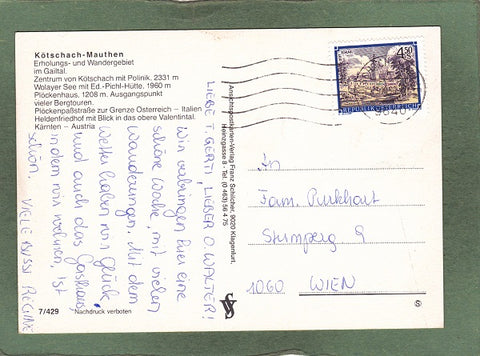 Kötschach-Mauthen
Erholungs- und Wandergebiet
im Gailtal.
Zentrum von Kötschach mit Polinik, 2331 m
Wolayer See mit Ed.-Pichl-Hütte, 1960 m
Plöckenhaus, 1208 m. Ausgangspunkt
vieler Bergtouren.
Plöckenpaßstraße zur Grenze Österreich – Italien
Heldenfriedhof mit Blick in das obere Valentintal.
Kärnten – Austria
LIEBE T. GERTI, LIEBER O. WALTER!
Wir verbringen hier eine
schöne Woche, mit vielen
Wanderungen. Mit dem
Wetter haben wir Glück,
und auch das Gasthaus,
in dem wir wohnen, ist
schön.
VIELE BUSSI REGINE
7/429
Nachdruck verboten
Ansichtspostkarten-Verlag Franz Schilcher, 9020 Klagenfurt,
Heinzgasse 8 - Tel. (0 463) 56 4 75
4.50
REPUBLIK ÖSTERREICH
9640
An
Fam. Purkhart
Stumperg. 9
1060 WIEN
S